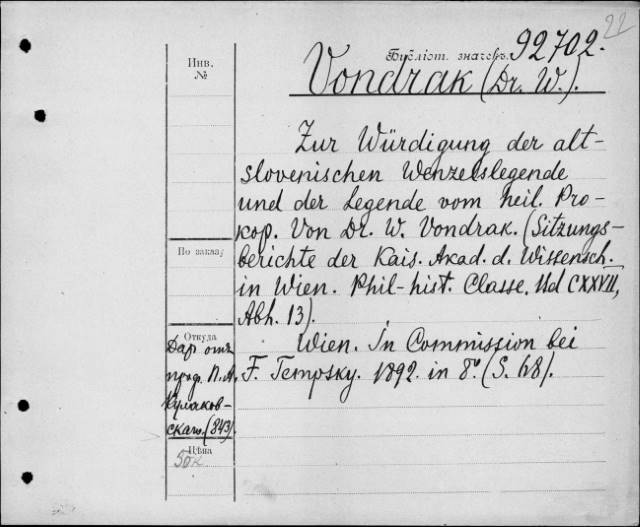 22
Библіот. значекъ. 92702.
Инв.
№
Vondrak (Dr. W.).
Zur Würdigung der alt-
slovenischen Wenzelslegende
und der Legende vom heil. Pro-
kop. Von Dr. W. Vondrak. (Sitzungs-
berichte der Kais. Akad. d. Wissensch.
in Wien. Phil-hist. Classe. Bd CXXVII,
Abh. 13).
Wien. In Commission bei
F. Tempsky. 1892. in 8°. (S. 68).
По заказу
Откуда
Даръ отъ
проф. П. А.
Кулаков-
скаго. (843).
Цѣна
50к